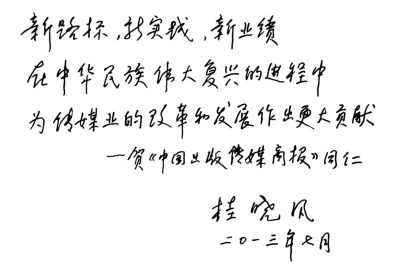 新路标，新实践，新业绩
在中华民族伟大复兴的进程中
为传媒业的改革和发展作出更大贡献
—贺《中国出版传媒商报》同仁
桂晓风
二〇一三年七月